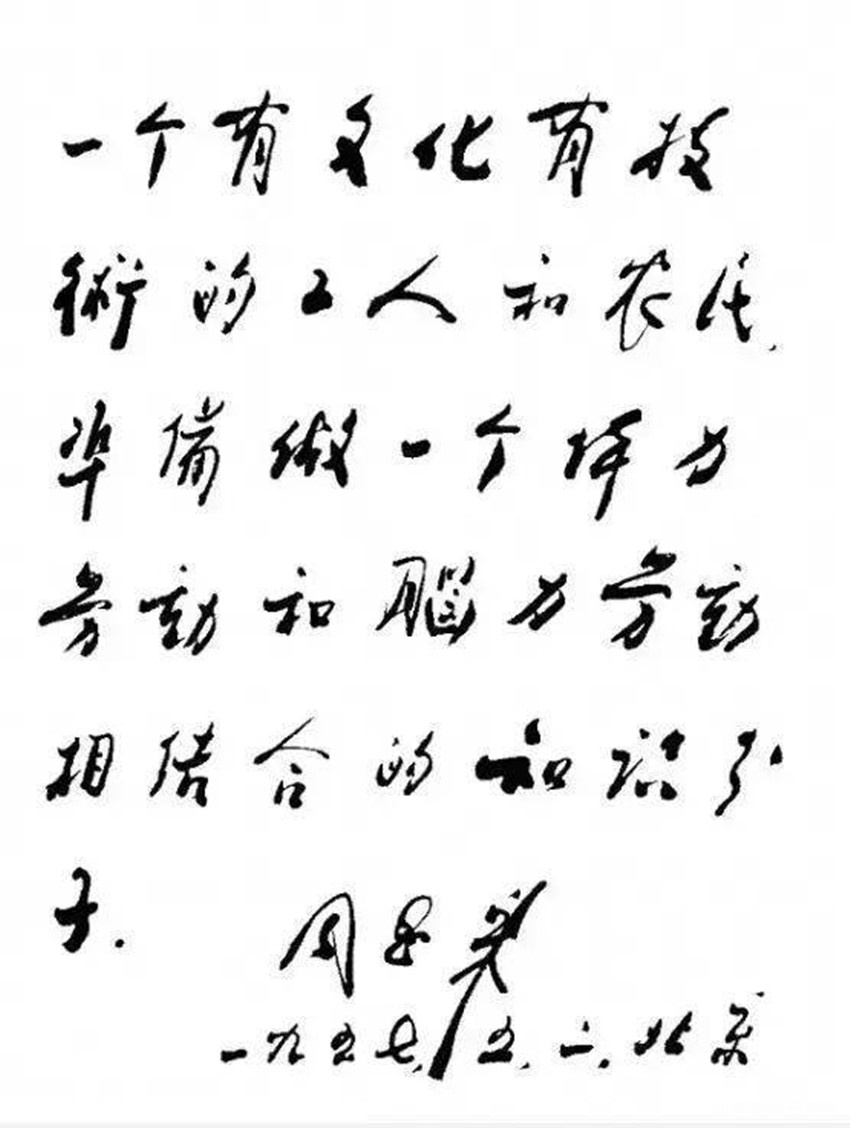 一个有文化有技
術的工人和农民,
準備做一个体力
劳动和腦力劳动
相结合的知识分
子.
周恩来
一九五七.五.二.北京